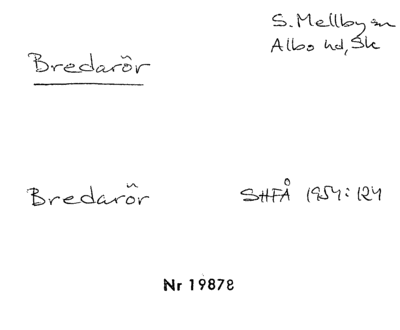 S. Mellby sn
Albo hd, Sk
Bredarör
Bredarör SHFÅ 1954:124
Nr 19878